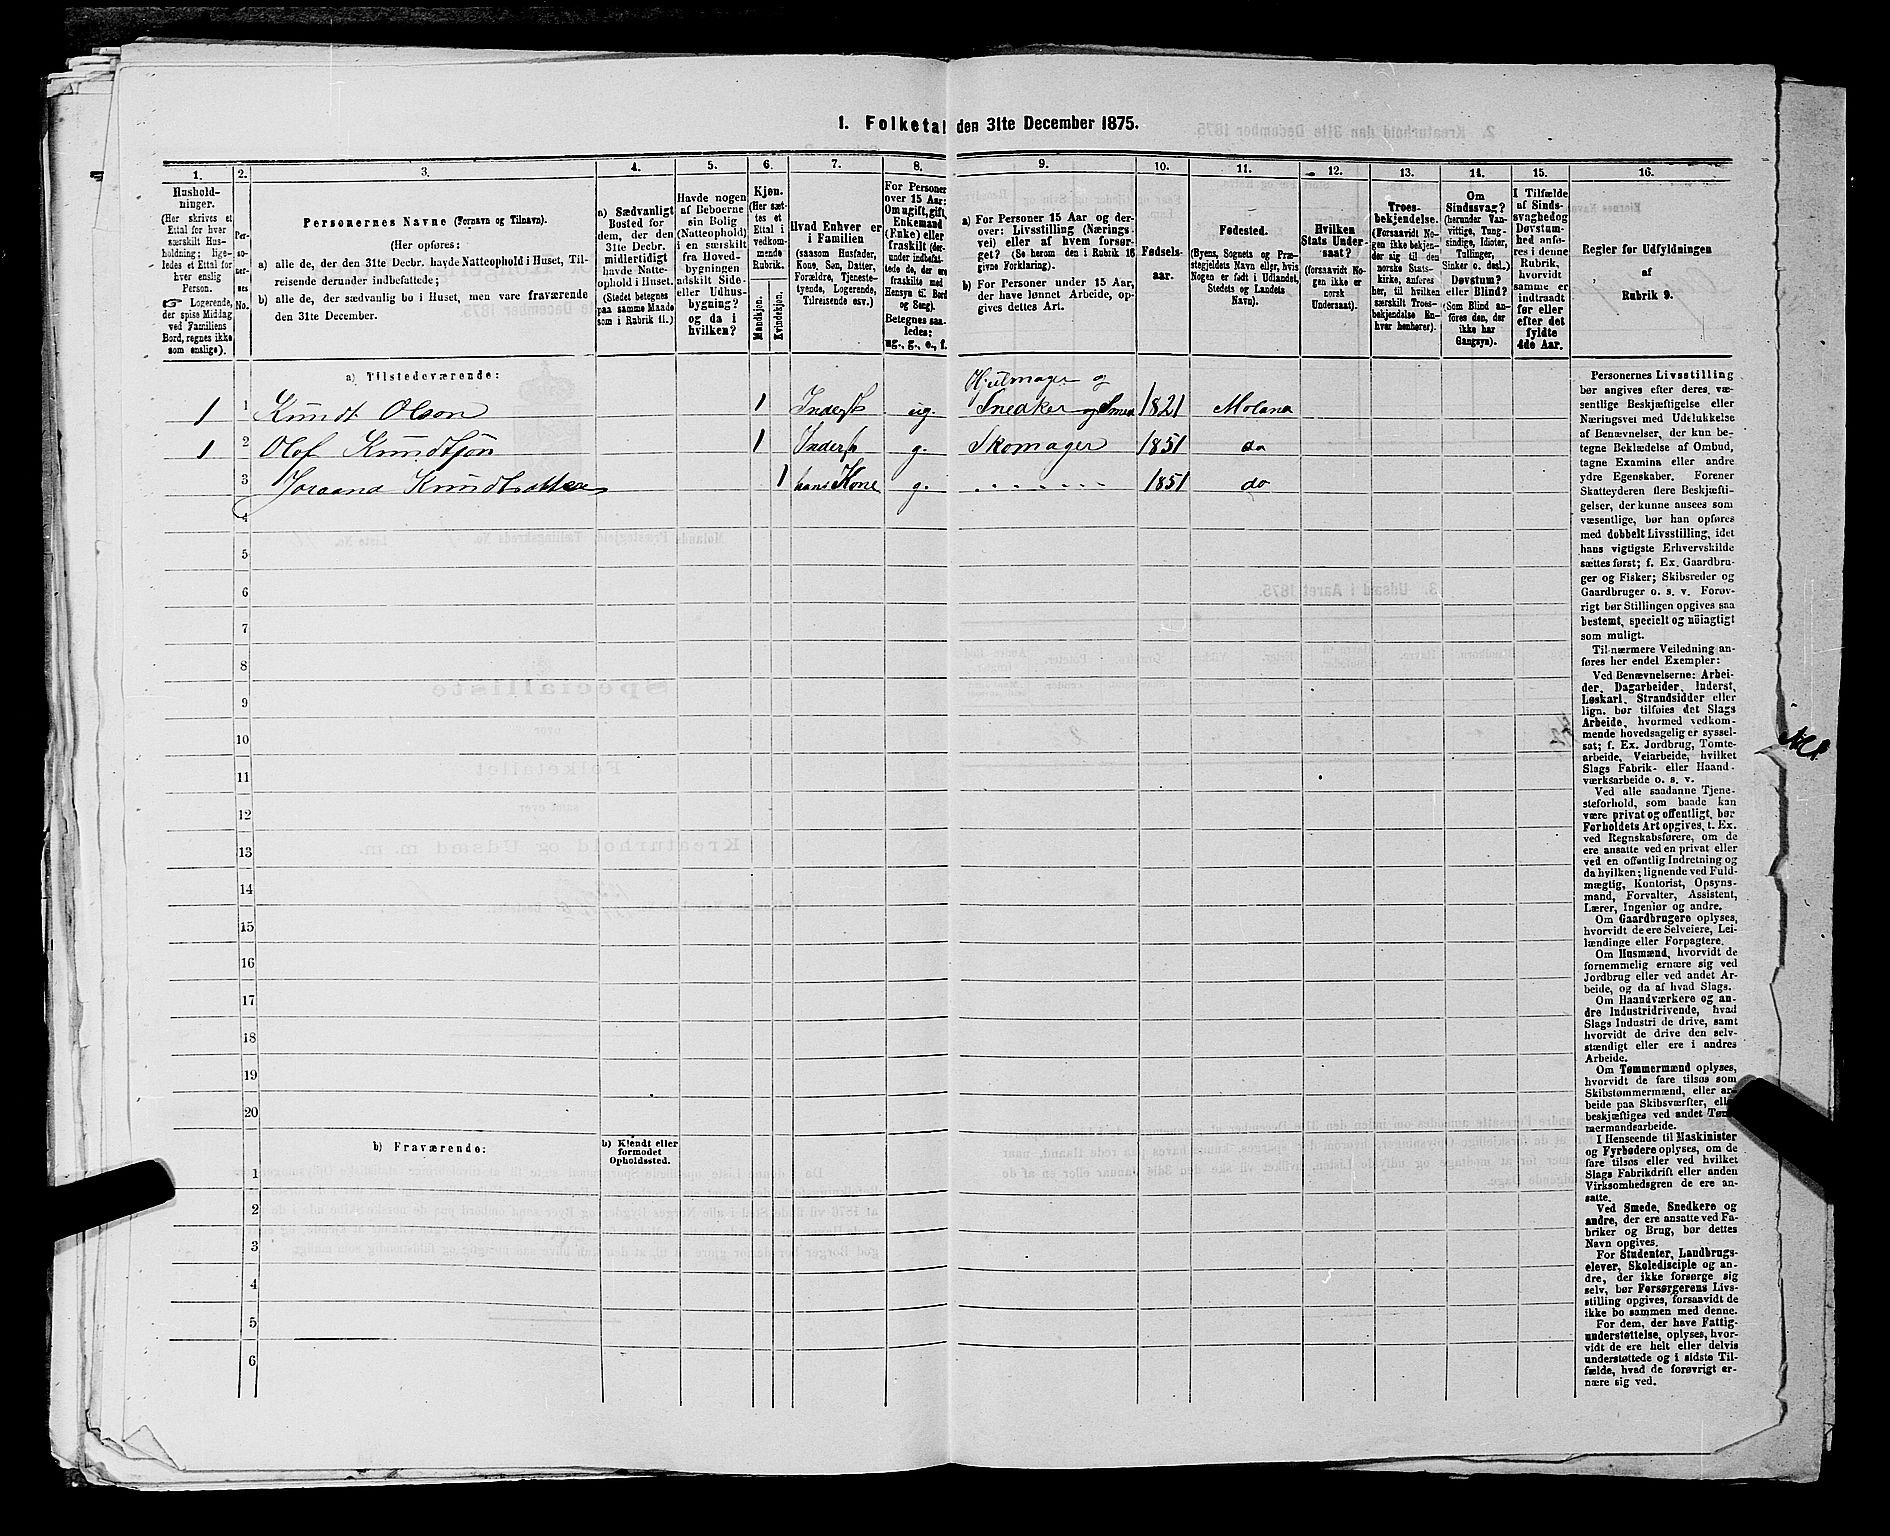 1. Folketal den 31te December 1875.
1.
2.
3.
4.
5.
6.
7.
8.
9.
10.
11.
12.
13.
14.
15.
16.
Hushold-
ninger.
(Her skrives et
Ettal for hver
særskilt Hus-
holdning; lige-
ledes et Ettal for
hver enslig
Person.
☞ Logerende,
der spise Middag
ved Familiens
Bord, regnes ikke
som enslige).
Per-
soner-
nes
No.
Personernes Navne (Fornavn og Tilnavn).
(Her opføres:
a) alle de, der den 31te Decbr. havde Natteophold i Huset, Til-
reisende derunder indbefattede;
b) alle de, der sædvanlig bo i Huset, men vare fraværende
den 31te December.
a) Sædvanligt
Bosted for
dem, der den
31te Decbr.
midlertidigt
havde Natte-
ophold i Huset.
(Stedet betegnes
paa samme Maade
som i Rubrik 11.)
Havde nogen
af Beboerne
sin Bolig
(Natteophold)
i en særskilt
fra Hoved-
bygningen
adskilt Side-
eller Udhus-
bygning?
og da i
hvilken?
Kjøn.
(Her sæt-
tes et
Ettal i
vedkom-
mende
Rubrik.
Mandkjøn.
Kvindekjøn.
Hvad Enhver er
i Familien
(saasom Husfader,
Kone, Søn, Datter,
Forældre, Tjeneste-
tyende, Logerende,
Tilreisende osv.)
For Personer
over 15 Aar:
Om ugift, gift,
Enkemand
(Enke) eller
fraskilt (der-
under indbefat-
tede de, der ere
fraskilte med
Hensyn til Bord
og Seng).
Betegnes saa-
ledes:
ug., g., e., f.
a) For Personer 15 Aar og der-
over: Livsstilling (Nærings-
vei) eller af hvem forsør-
get? (Se herom den i Rubrik 16
givne Forklaring).
b) For Personer under 15 Aar,
der have lønnet Arbeide, op-
gives dettes Art.
Fødsels-
aar.
Fødested.
(Byens, Sognets og Præ-
stegjeldets Navn eller, hvis
Nogen er født i Udlandet,
Stedets og Landets
Navn).
Hvilken
Stats Under-
saat?
(forsaavidt No-
gen ikke er
norsk
Undersaat).
Troes-
bekjendelse.
(Forsaavidt No-
gen ikke bekjen-
der sig til den
norske Stats-
kirke, anføres
her, til hvilken
særskilt Troes-
bekjendelse En-
hver henhører).
Om
Sindssvag?
(herunder Van-
vittige, Tung-
sindige, Idioter,
Tullinger,
Sinker o. desl.)
Døvstum?
eller Blind?
(Som Blind an-
føres den, der
ikke har
Gangsyn).
I Tilfælde
af Sinds-
svaghed og
Døvstum-
hed anfø-
res i denne
Rubrik,
hvorvidt
samme er
indtraadt
før eller
efter det
fyldte
4de Aar.
Regler for Udfyldningen
af
Rubrik 9.
a) Tilstedeværende:
1 1 Knudt Olson 1 Inderst ug. Hjulmager og Snedker og Smed 1821 Moland
1 2 Olof Knudtson 1 Inderst g. Skomager 1851 do
3 Joraand Knudtsdatter 1 hans Kone g. 1851 do
4
5
6
7
8
9
10
11
12
13
14
15
16
17
18
19
20
b) Fraværende:
b) Kjendt eller
formodet
Opholdssted.
1
2
3
4
5
6
Personernes Livsstilling
bør angives efter deres væ-
sentlige Beskjæftigelse eller
Næringsvei med Udelukkelse
af Benævnelser, der kun be-
tegne Beklædelse af Ombud,
tagne Examina eller andre
ydre Egenskaber. Forener
Skatteyderen flere Beskjæfti-
gelser, der kunne ansees som
væsentlige, bør han opføres
med dobbelt Livsstilling, idet
hans vigtigste Erhvervskilde
sættes først; f. Ex. Gaardbru-
ger og Fisker; Skibsreder og
Gaardbruger o. s. v. Forøv-
rigt bør Stillingen opgives saa
bestemt, specielt og nöiagtigt
som muligt.
Til nærmere Veiledning an-
føres her endel Exempler:
Ved Benævnelserne: Arbei-
der, Dagarbeider, Inderst,
Løskarl, Strandsidder eller
lign. bør tilføies det Slags
Arbeide, hvormed vedkom-
mende hovedsagelig er syssel-
sat; f. Ex. Jordbrug, Tomte-
arbeide, Veiarbeide, hvilket
Slags Fabrik- eller Haand-
værksarbeide o. s. v.
Ved alle saadanne Tjene-
steforhold, som baade kan
være privat og offentligt, bør
Forholdets Art opgives, t. Ex.
ved Regnskabsførere, om de
ere ansatte ved en privat eller
ved en offentlig Indretning og
da hvilken; lignende ved Fuld-
mægtig, Kontorist, Opsyns-
mand, Forvalter, Assistent,
Lærer, Ingeniør og andre.
Om Gaardbrugere oplyses,
hvorvidt de ere Selveiere, Lei-
lændinge eller Forpagtere.
Om Husmænd, hvorvidt de
fornemmelig ernære sig ved
Jordbrug eller ved andet Ar-
beide, og da af hvad Slags.
Om Haandværkere og an-
dre Industridrivende, hvad
Slags Industri de drive, samt
hvorvidt de drive den selv-
stændigt eller ere i andres
Arbeide.
Om Tømmermænd oplyses,
hvorvidt de fare tilsøs som
Skibstømmermænd, eller ar-
beide paa Skibsværfter, eller
beskjæftiges ved andet Tøm-
mermandsarbeide.
I Henseende til Maskinister
og Fyrbødere oplyses, om de
fare tilsøs eller ved hvilket
Slags Fabrikdrift eller anden
Virksomhedsgren de ere an-
satte.
Ved Smede, Snedkere og
andre, der ere ansatte ved Fa-
briker og Brug, bør dettes
Navn opgives.
For Studenter, Landbrugs-
elever, Skoledisciple og an-
dre, der ikke forsørge sig
selv, bør Forsørgerens Livs-
stilling opgives, forsaavidt de
ikke bo sammen med denne.
For dem, der have Fattig-
understøttelse, oplyses, hvor-
vidt de ere helt eller delvis
understøttede og i sidste Til-
fælde, hvad de forøvrigt er-
nære sig ved.